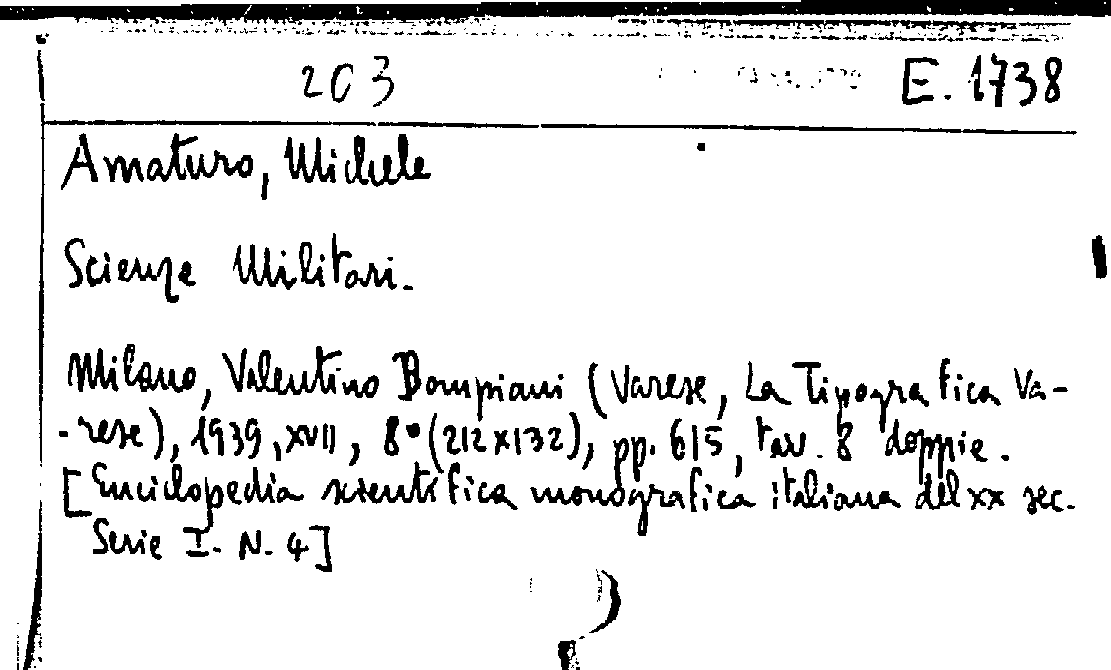 203 E. 1738
Amaturo, Michele
Scienze Militari.
Milano, Valentino Bompiani (Varese, La Tipografica Va-
-rese), 1939, XVII, 8° (212x132), pp. 615, tav. 8 doppie.
[Enciclopedia scientifica monografica italiana del XX sec.
Serie I. N. 4]